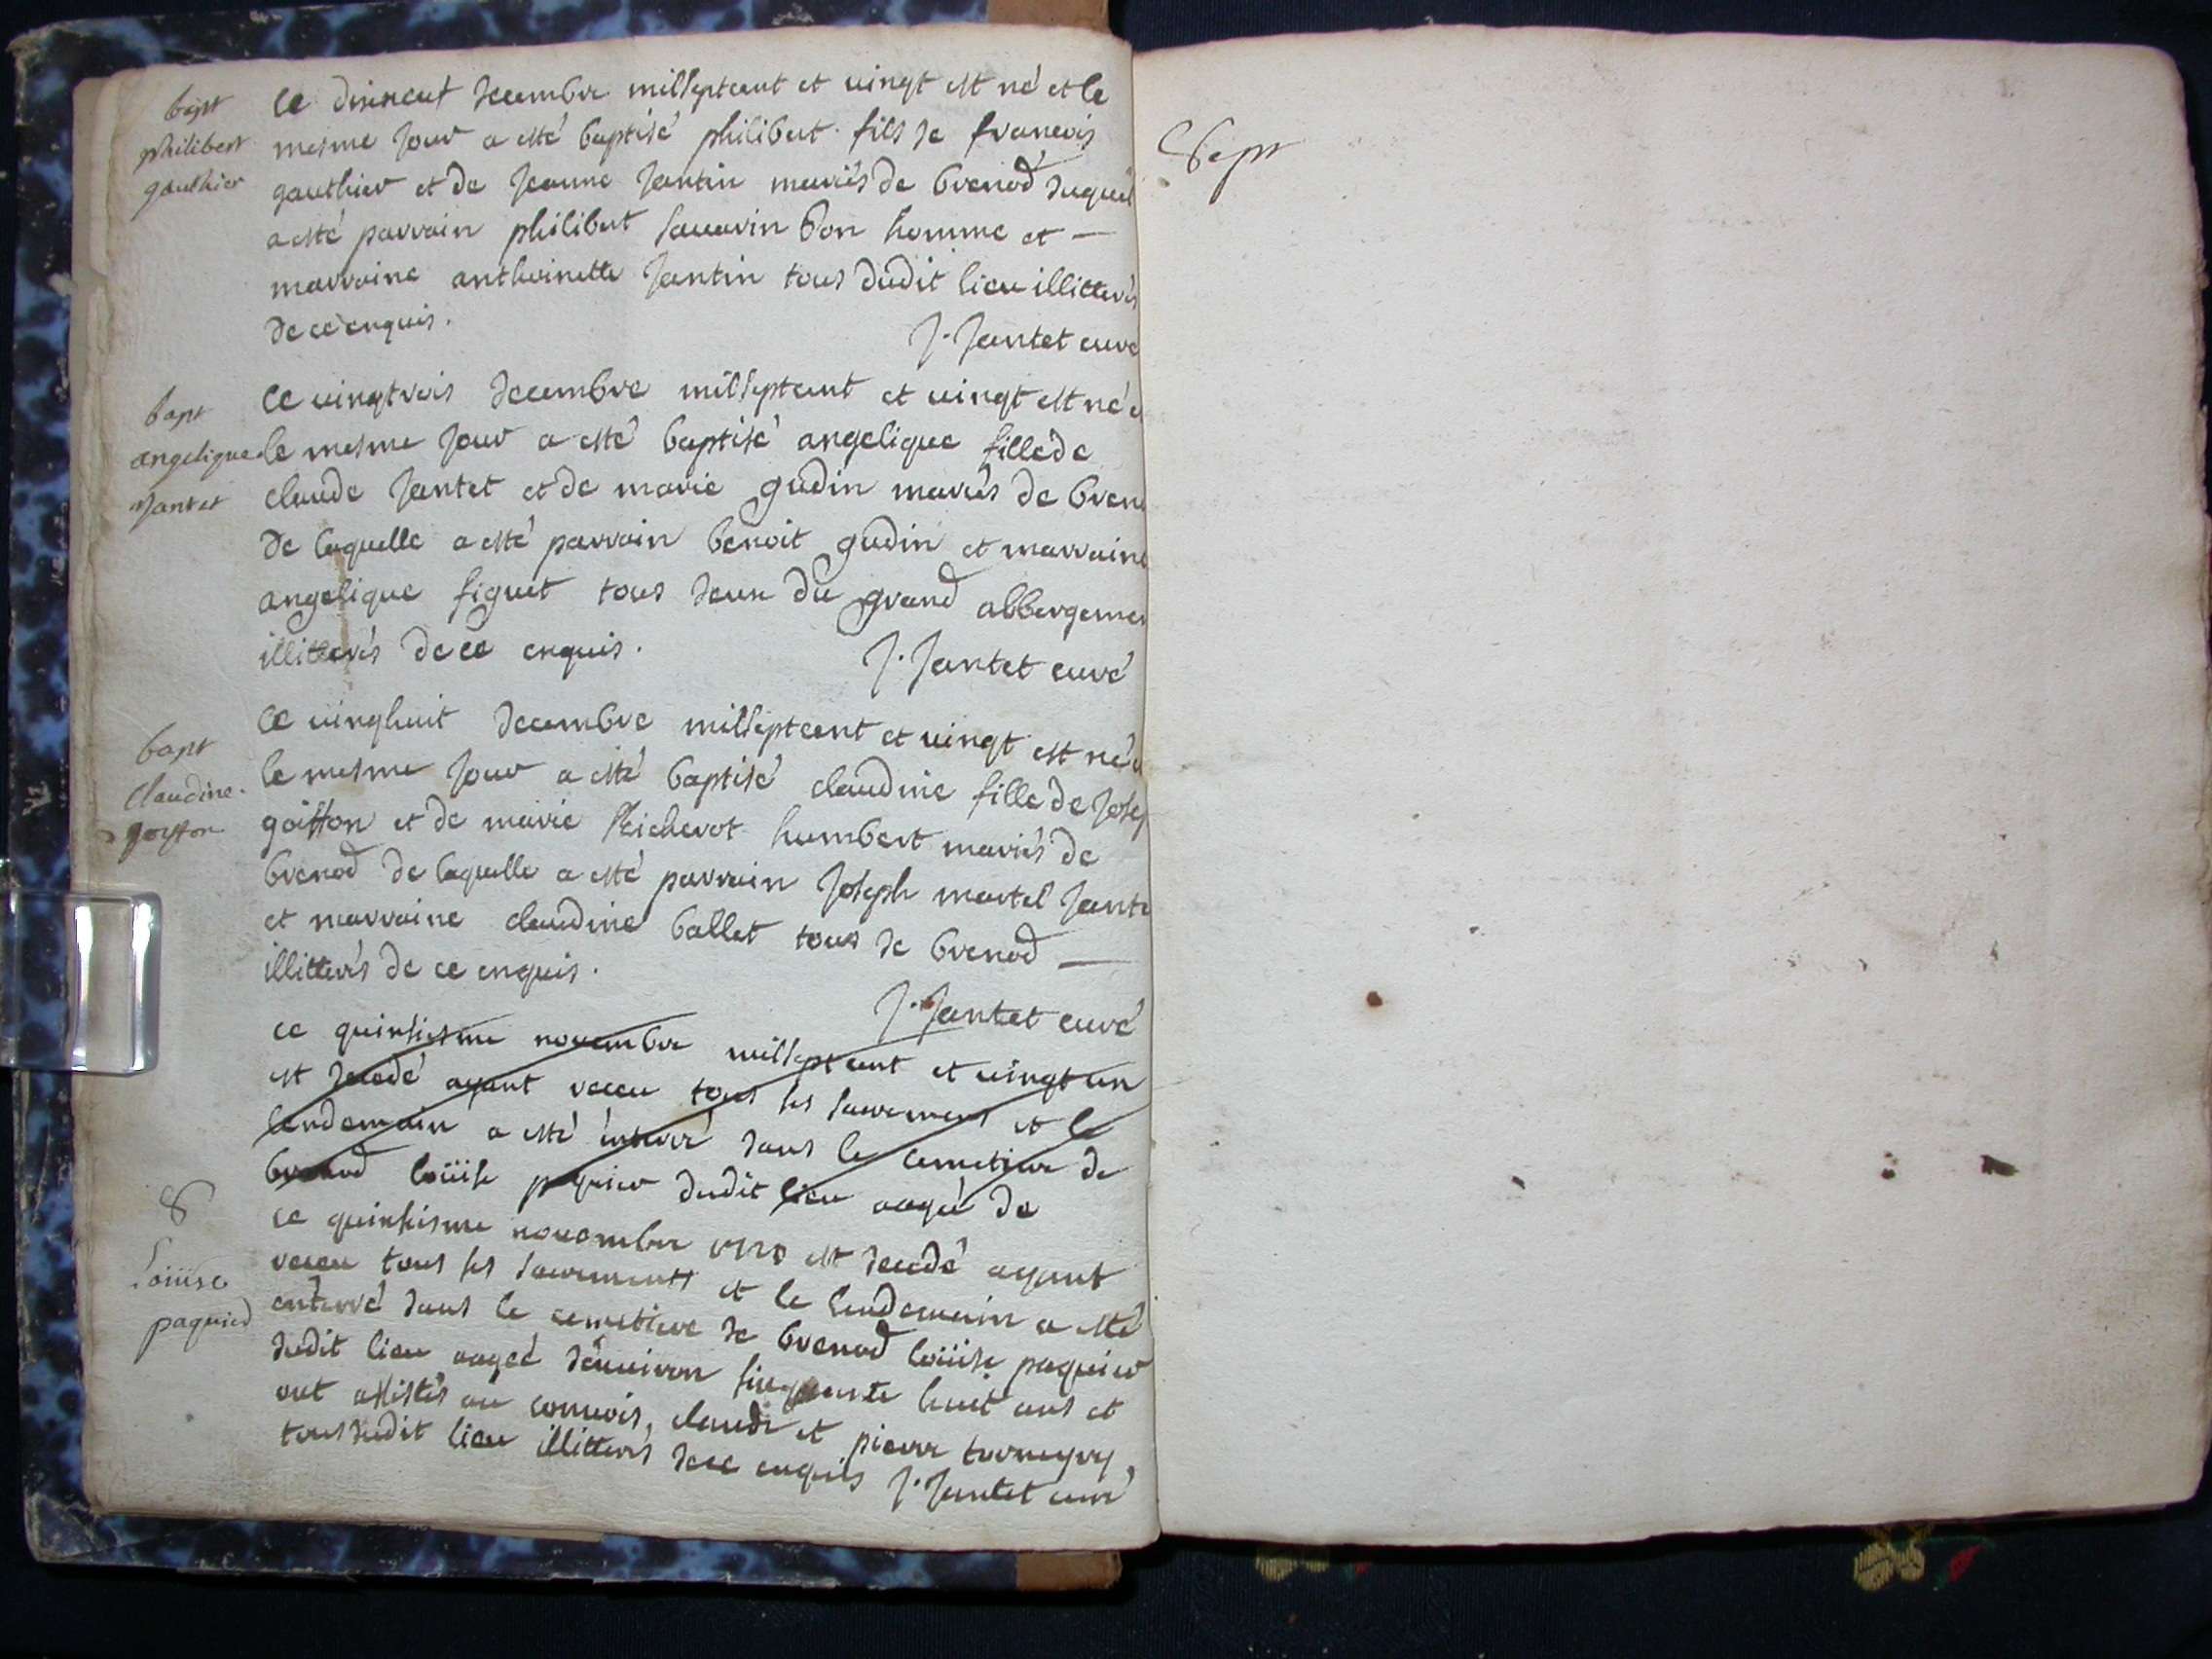 bapt
philibert
gauthier
Ce disneuf decembre milseptcent et uingt est né et le
mesme jour a esté baptisé philibert fils de francois
gauthier et de jeanne jantin mariés de brenod duquel
a esté parrain philibert sauarin bon homme et —
marraine anthoinette jantin tous dudit lieu illitterés
de ce enquis.
J. Jantet curé
bapt
angelique
Jantet
Ce uingtrois decembre milseptcent et uingt est né e
le mesme jour a esté baptisé angelique fille de
claude Jantet et de marie gudin mariés de bren
de laquelle a esté parrain benoit gudin et marraine
angelique figuet tous deux du grand abbergemen
illitterés de ce enquis.
J. Jantet curé
bapt
Claudine
goyffon
Ce uinghuit decembre milseptcent et uingt est né e
le mesme jour a esté baptisé claudine fille de Josep
goiffon et de marie humbert mariés de
brenod de laquelle a esté parrain Joseph martel Jante
et marraine claudine ballet tous de brenod —
illitterés de ce enquis.
J. Jantet curé
ce quinsiesme nouembre milseptcent et uingt un
est decedé ayant receu tous les sacremens et le
lendemain a esté enterré dans le cemetiere de
brenod loüise paquier dudit lieu aagée de
Loüise
paquied
ce quinsisme nouembre 1720 est decedé ayant
receu tous les sacrements et le lendemain a esté
enterré dans le cemetiere de brenod loüise paquier
dudit lieu aageé d'enuiron sinquante huit ans et
ont assistés au conuois, claude et pierre tornyery,
tous dudit lieu illitterés de ce enquis J. Jantet curé
Sepr